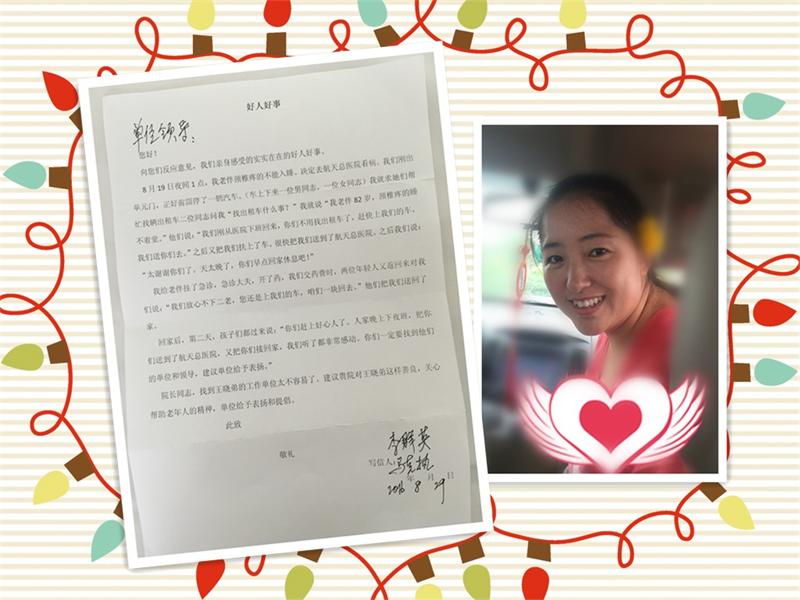 好人好事
单位领导：
您好！
向您们反应意见，我们亲身感受的实实在在的好人好事。
8月19日夜间1点，我老伴颈椎疼的不能入睡。决定去航天总医院看病。我们刚出
单元门，正好前面停了一辆汽车。（车上下来一位男同志，一位女同志）我就求她们帮
忙找辆出租车二位同志问我“找出租车什么事？”我就说“我老伴82岁，颈椎疼的睡
不着觉。”他们说：“我们刚从医院下班回来，你们不用找出租车了，赶快上我们的车，
我们送你们去。”之后又把我们扶上了车。很快把我们送到了航天总医院。之后我们说：
“太谢谢你们了，天太晚了，你们早点回家休息吧！”
我给老伴挂了急诊，急诊大夫，开了药，我们交药费时，两位年轻人又返回来对我
们说：“我们放心不下二老，您还是上我们的车，咱们一块回去。”他们把我们送回了
家。
回家后，第二天，孩子们都过来说：“你们赶上好心人了。人家晚上下夜班，把你
们送到了航天总医院，又把你们接回家，我们听了都非常感动。你们一定要找到他们
的单位和领导，建议单位给予表扬。”
院长同志，找到王晓弟的工作单位太不容易了。建议贵院对王晓弟这样善良，关心
帮助老年人的精神，单位给予表扬和提倡。
此致
敬礼
写信人：
年 月 日
8 29